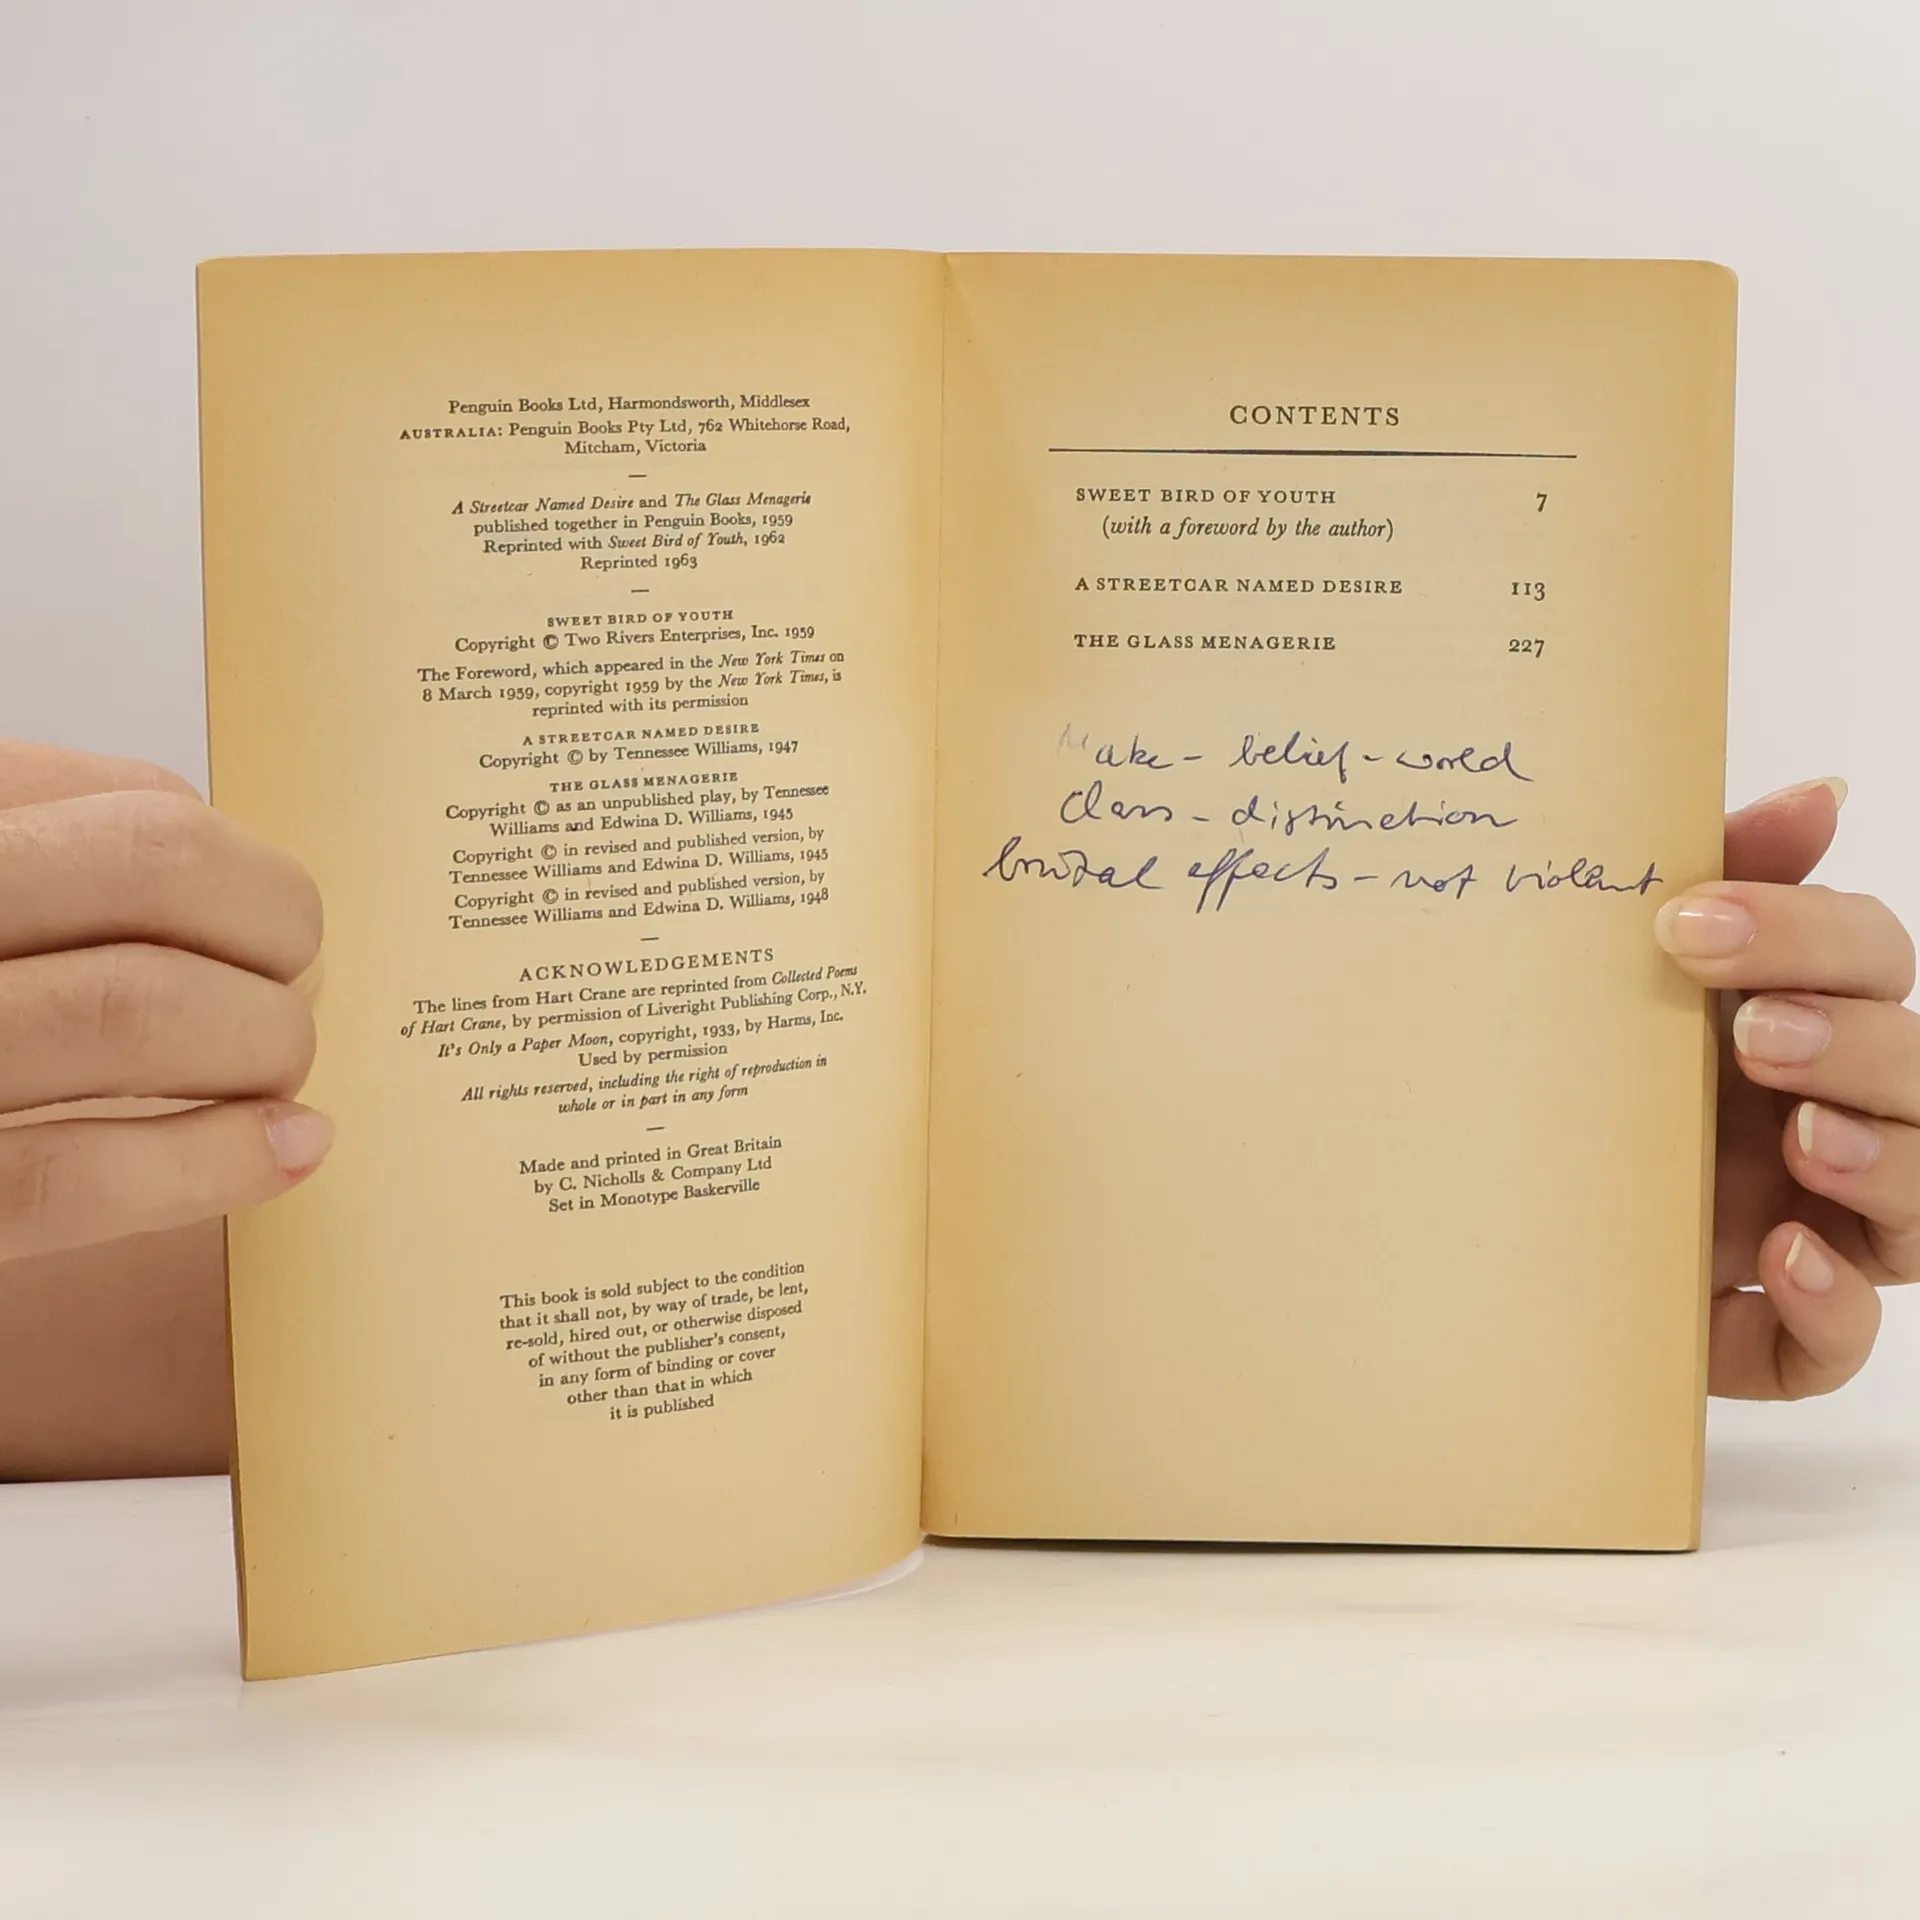 Penguin Books Ltd, Harmondsworth, Middlesex
AUSTRALIA: Penguin Books Pty Ltd, 762 Whitehorse Road,
Mitcham, Victoria
—
A Streetcar Named Desire and The Glass Menagerie
published together in Penguin Books, 1959
Reprinted with Sweet Bird of Youth, 1962
Reprinted 1963
—
SWEET BIRD OF YOUTH
Copyright © Two Rivers Enterprises, Inc. 1959
The Foreword, which appeared in the New York Times on
8 March 1959, copyright 1959 by the New York Times, is
reprinted with its permission
A STREETCAR NAMED DESIRE
Copyright © by Tennessee Williams, 1947
THE GLASS MENAGERIE
Copyright © as an unpublished play, by Tennessee
Williams and Edwina D. Williams, 1945
Copyright © in revised and published version, by
Tennessee Williams and Edwina D. Williams, 1945
Copyright © in revised and published version, by
Tennessee Williams and Edwina D. Williams, 1948
—
ACKNOWLEDGEMENTS
The lines from Hart Crane are reprinted from Collected Poems
of Hart Crane, by permission of Liveright Publishing Corp., N.Y.
It's Only a Paper Moon, copyright, 1933, by Harms, Inc.
Used by permission
All rights reserved, including the right of reproduction in
whole or in part in any form
—
Made and printed in Great Britain
by C. Nicholls & Company Ltd
Set in Monotype Baskerville
This book is sold subject to the condition
that it shall not, by way of trade, be lent,
re-sold, hired out, or otherwise disposed
of without the publisher's consent,
in any form of binding or cover
other than that in which
it is published
CONTENTS
SWEET BIRD OF YOUTH 7
(with a foreword by the author)
A STREETCAR NAMED DESIRE 113
THE GLASS MENAGERIE 227
Make - belief - world
Class - distinction
brutal effects - not violent